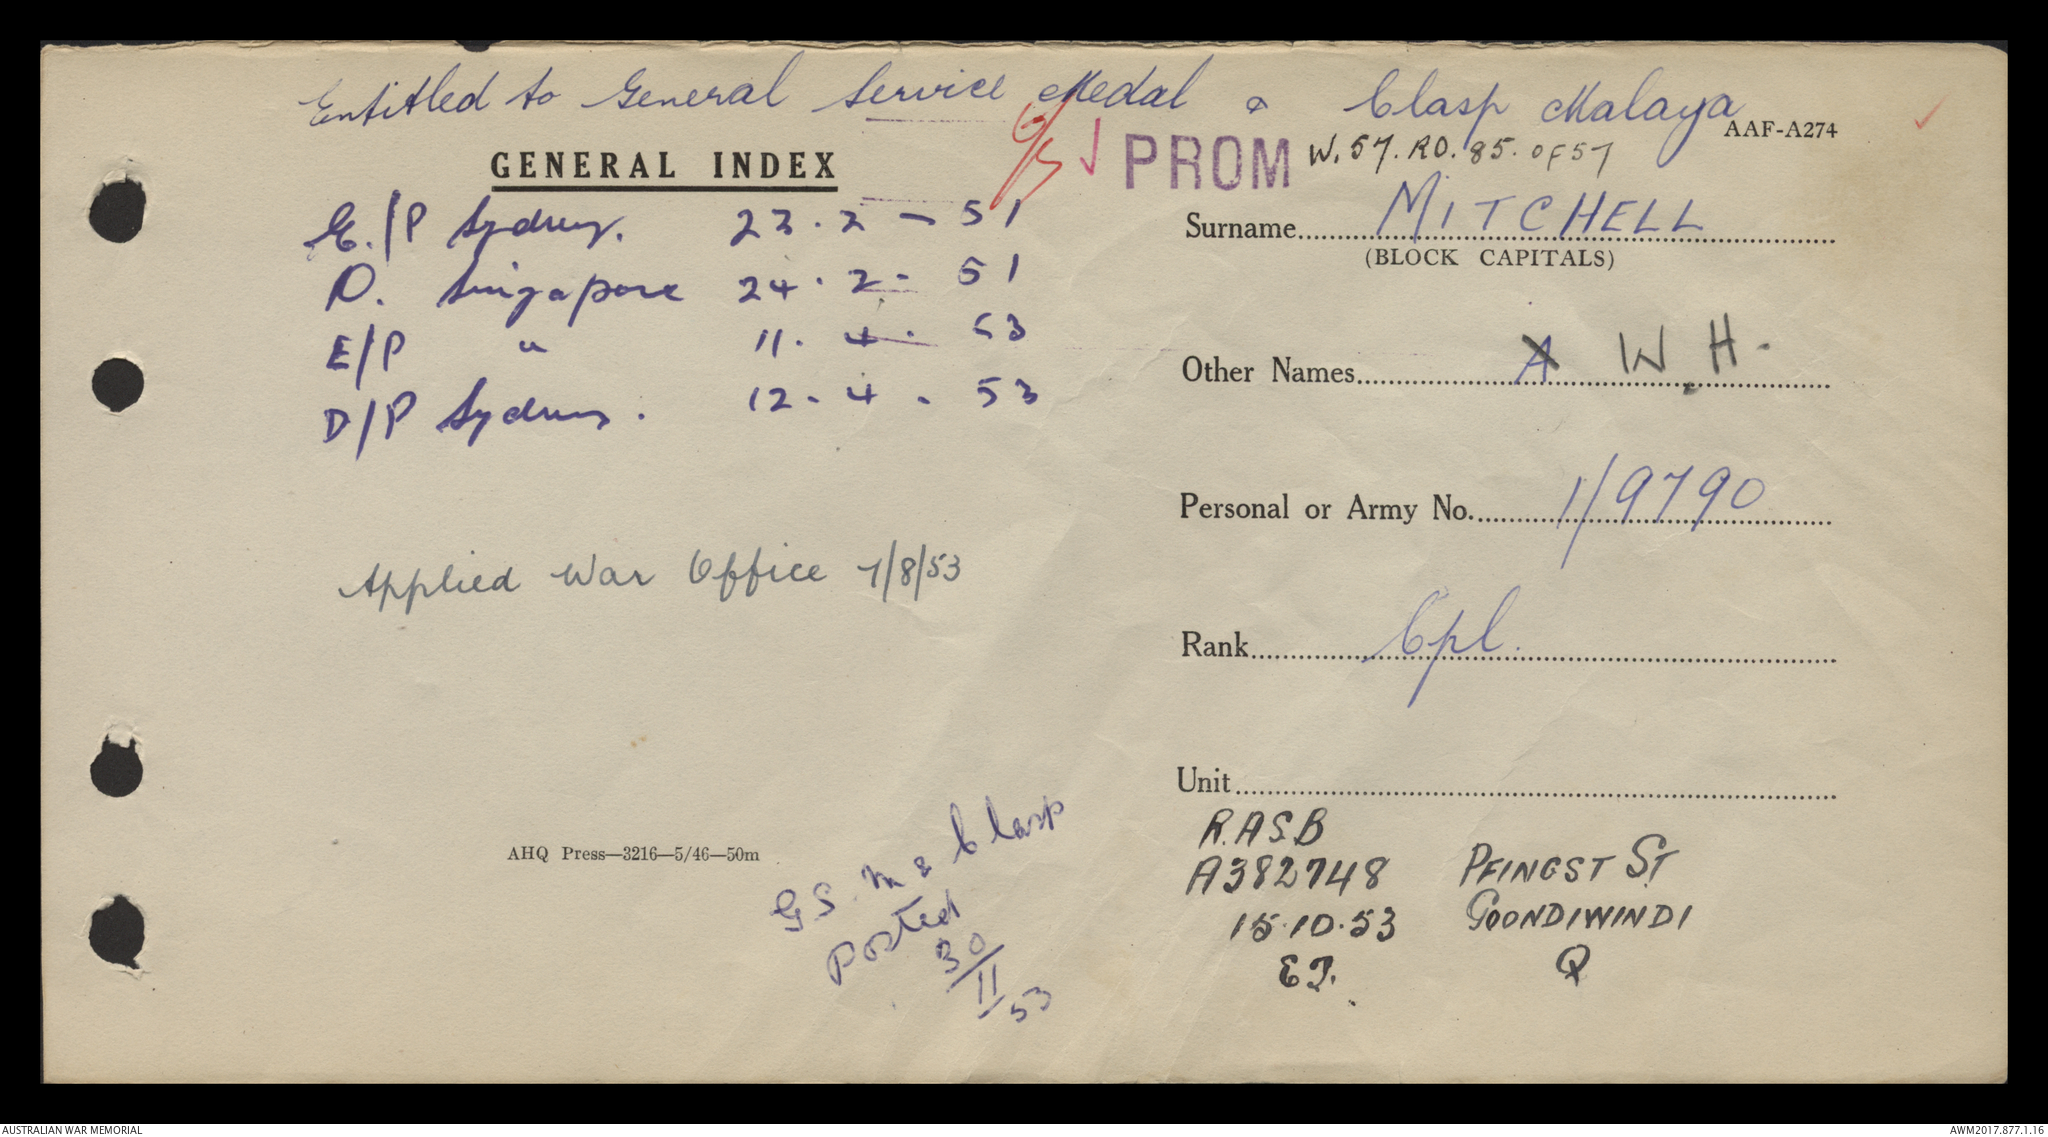 Entitled to General Service Medal & Clasp Malaya
AAF-A274
GENERAL INDEX
PROM
W.57.RO.85.OF57
E./P Sydney. 23.2-51
D. Singapore 24.2-51
E/P " 11.4.53
D/P Sydney. 12.4.53
Applied War Office 7/8/53
AHQ Press—3216—5/46—50m
G.S.M & Clasp
Posted
30/11/53
Surname MITCHELL
(BLOCK CAPITALS)
Other Names A W.H.
Personal or Army No. 1/9790
Rank Cpl.
Unit
R.ASB
A382748
15.10.53
PFINGST ST
GOONDIWINDI
Q
AUSTRALIAN WAR MEMORIAL
AWM2017.877.1.16